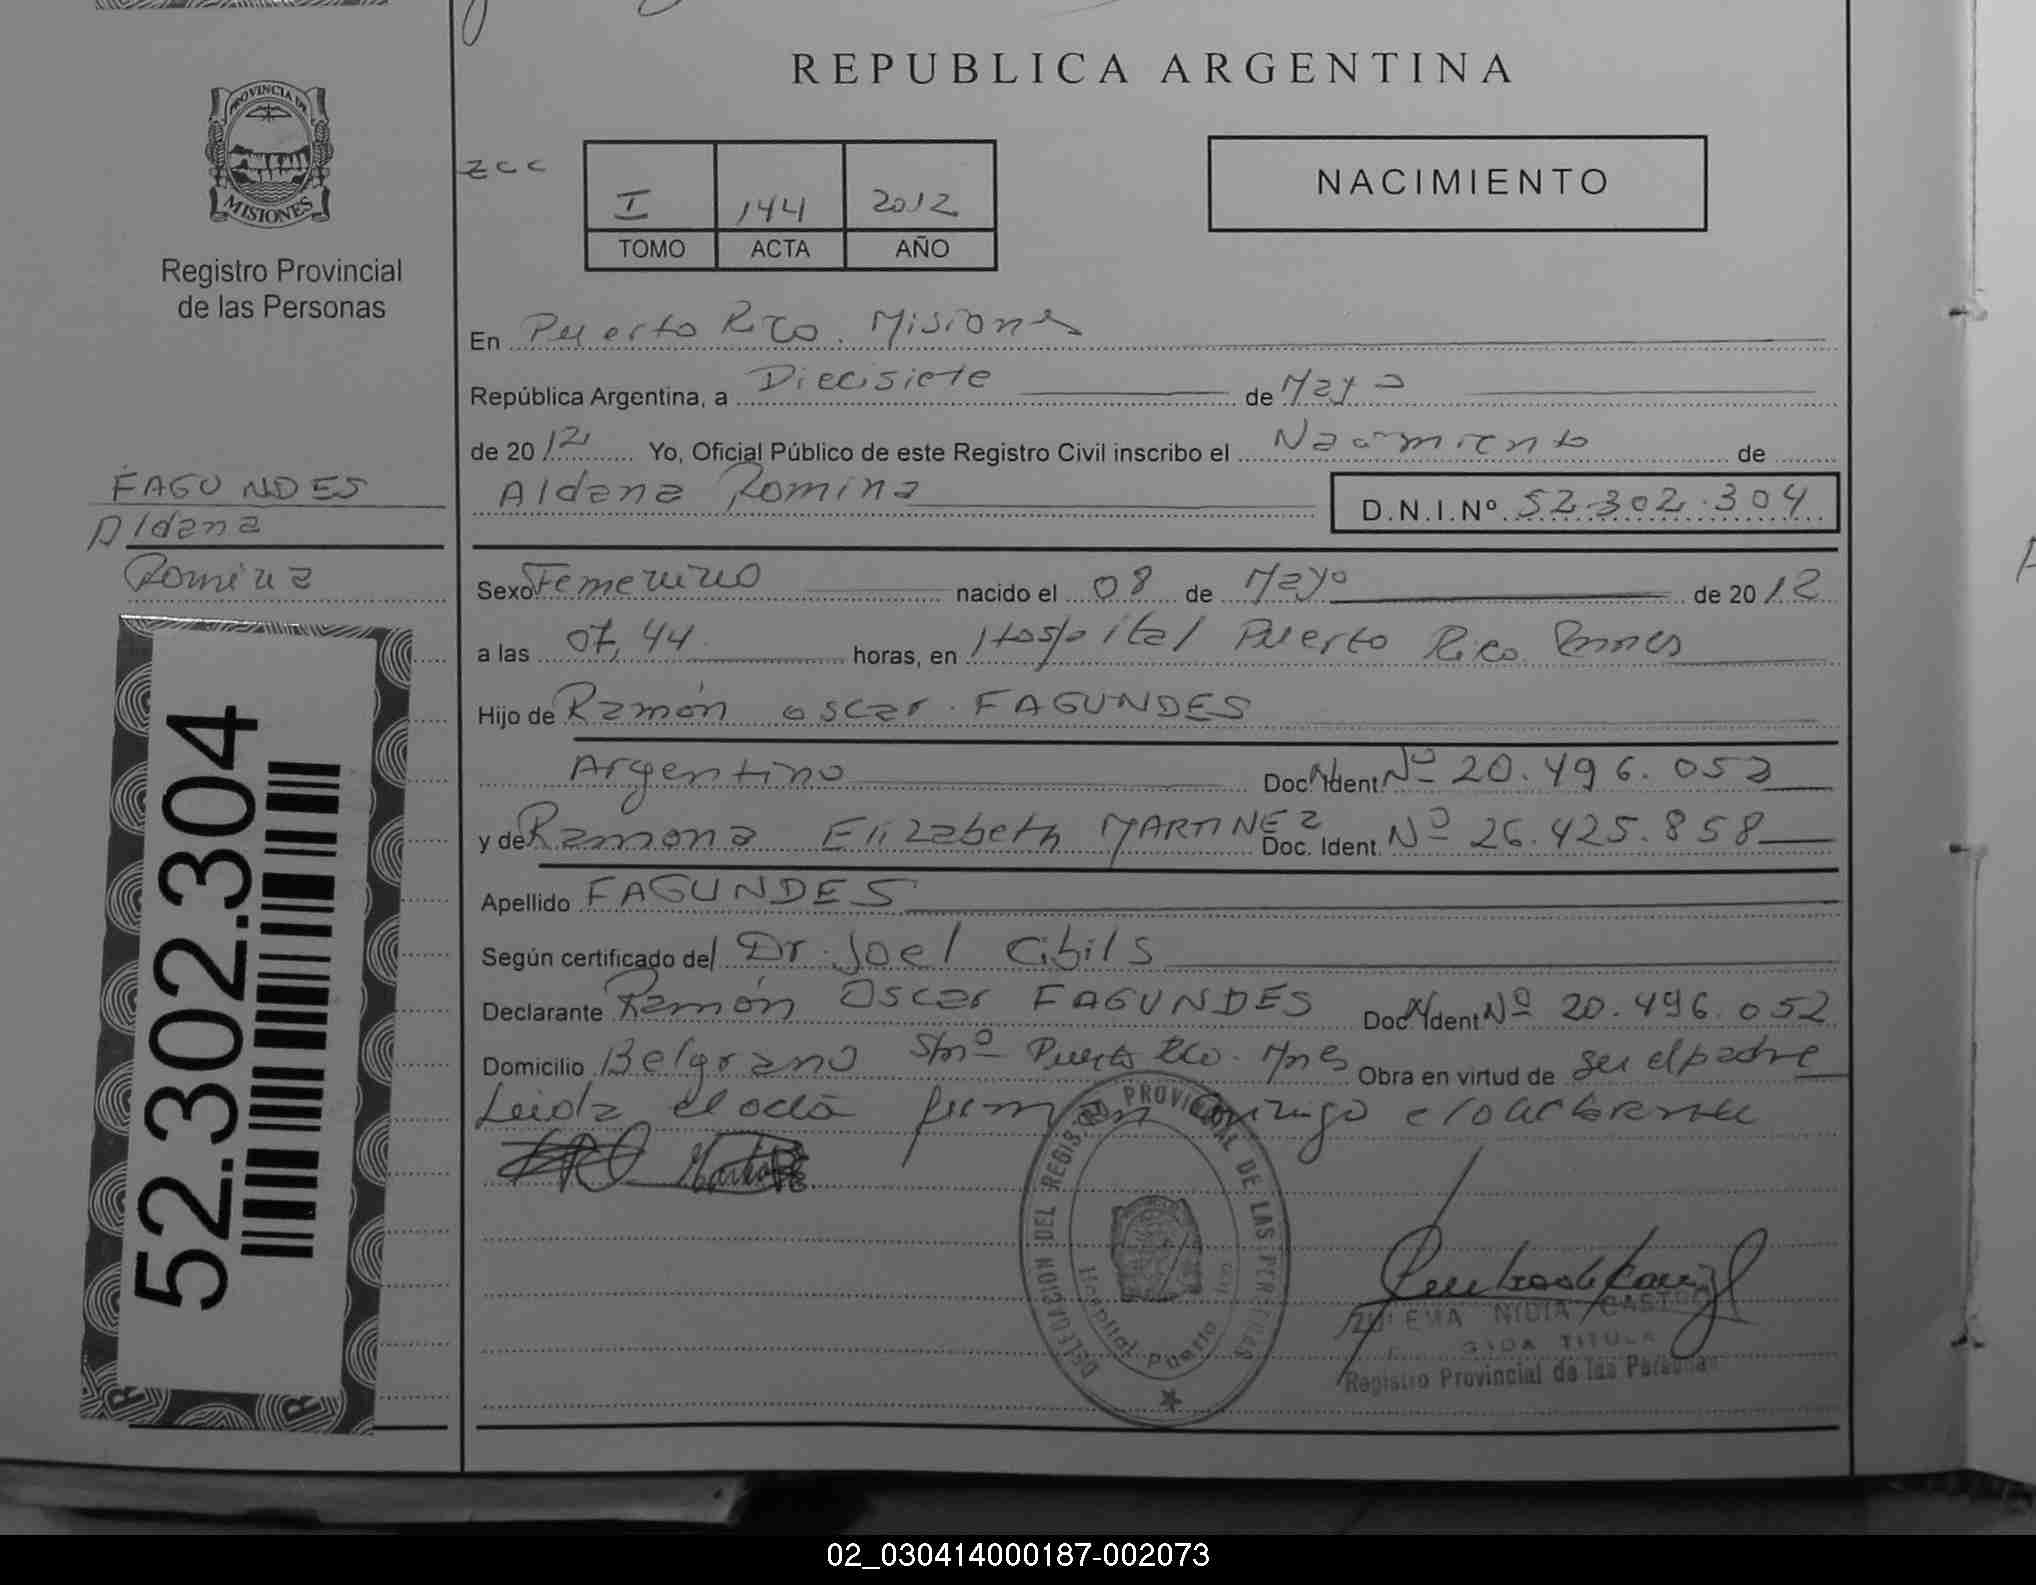 REPUBLICA ARGENTINA
PROVINCIA DE
MISIONES
Registro Provincial
de las Personas
zcc
I 144 2012
TOMO ACTA AÑO
NACIMIENTO
En Puerto Rico. Misiones
República Argentina, a Diecisiete de Mayo
de 2012 Yo, Oficial Público de este Registro Civil inscribo el Nacimiento de
Aldana Romina D.N.I.Nº 52.302.304
FAGUNDES
Aldana
Romina
Sexo Femenino nacido el 08 de Mayo de 2012
a las 07,44 horas, en Hospital Puerto Rico
Hijo de Ramón Oscar FAGUNDES
Argentino Doc. Ident. Nº 20.496.052
y de Ramona Elizabeth MARTINEZ Doc. Ident. Nº 26.425.858
Apellido FAGUNDES
Según certificado del Dr. Joel Cibils
Declarante Ramón Oscar FAGUNDES Doc. Ident. Nº 20.496.052
Domicilio Belgrano S/nº Puerto Rco. Mnes Obra en virtud de ser el padre
Leida el acta firman conmigo el declarante
52.302.304
DELEGACION DEL REGISTRO PROVINCIAL DE LAS PERSONAS
Hospital Puerto
NIDIA CASTRO
TITULA
Registro Provincial de las Personas
02_030414000187-002073